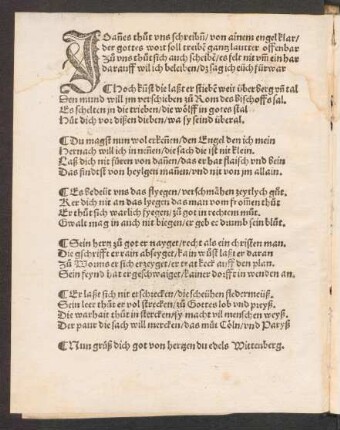 JOañes thůt vns schreibñ/ von ainem engel klar/
der gottes wort soll treibē gantz lautter offenbar
Zů vns thůt sich auch scheibē/ es felt nit vm̄ ein har
darauff wil ich beleiben/ dz sag ich eüch fürwar
¶ Noch künst die laßt er stiebē weit über berg vn̄ tal
Den mund will jm verschieben zů Rom des Bischoffs sal.
Es schelten jn die trieben/ die wölff in gotes stal
Hüt dich vor disen dieben/ wa sy seind überal.
¶ Du magst nun wol erkeñen/ den Engel den ich mein
Hernach will ich in neñen/ die sach die ist nit klein.
Laß dich nit füren von dañen/ das er hat flaisch vnd Bein
Das findst von heylgen mañen/ vnd nit von jm allain.
¶ Es Bedeüt vns das flyegen/ verschmähen zeytlych gůt.
Ker dich nit an das lyegen das man vom fromeñ thůt
Er thůt sich warlich fyegen/ zů got in rechtem můt.
Gwalt mag in auch nit biegen/ er geb ee drumb sein blůt.
¶ Sein hertz zů got er nayget/ recht als ein christen man.
Die gschrifft er rain absyget/ kain wůst laßt er daran
Zů Worms er sich erzeyget/ er trat keck auff den plan.
Sein feynd hat er geschwaiget/ kainer dorfft in wenden an.
¶ Er laßt sich nit erschrecken/ die scheühen fledermeüß.
Sein leer thůt er vol strecken/ zů Gottes lob vnd preyß.
Die warhait thůt in stercken/ sy macht vil menschen weyß.
Der paur die sach will mercken/ das můt Cöln/ vnd Paryß
¶ Nun grüß dich got von hertzen du edels Wittenberg.